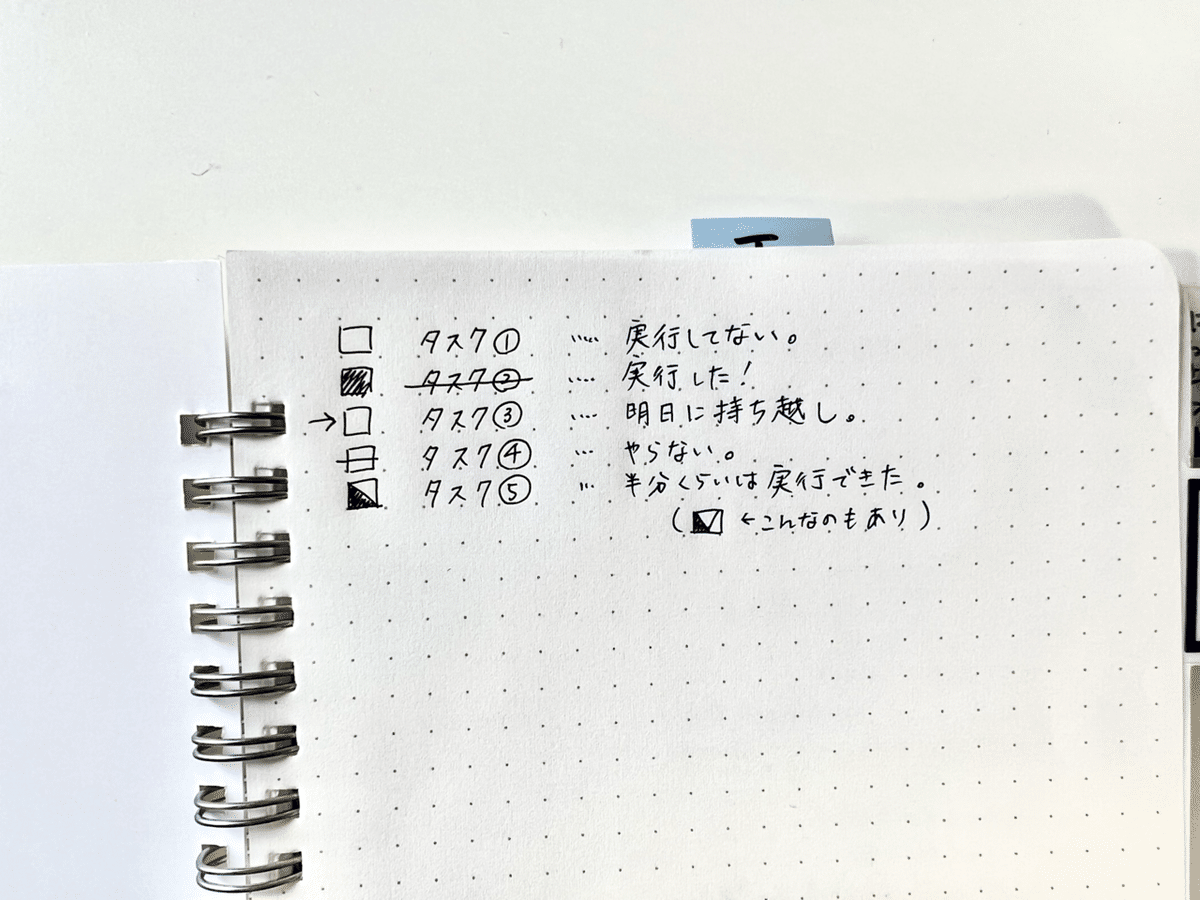 □ タスク① ‥‥ 実行してない。
■ タスク② ‥‥ 実行した!
→□ タスク③ ‥‥ 明日に持ち越し。
タスク④ … やらない。
タスク⑤ … 半分くらいは実行できた。
( ←こんなのもあり)